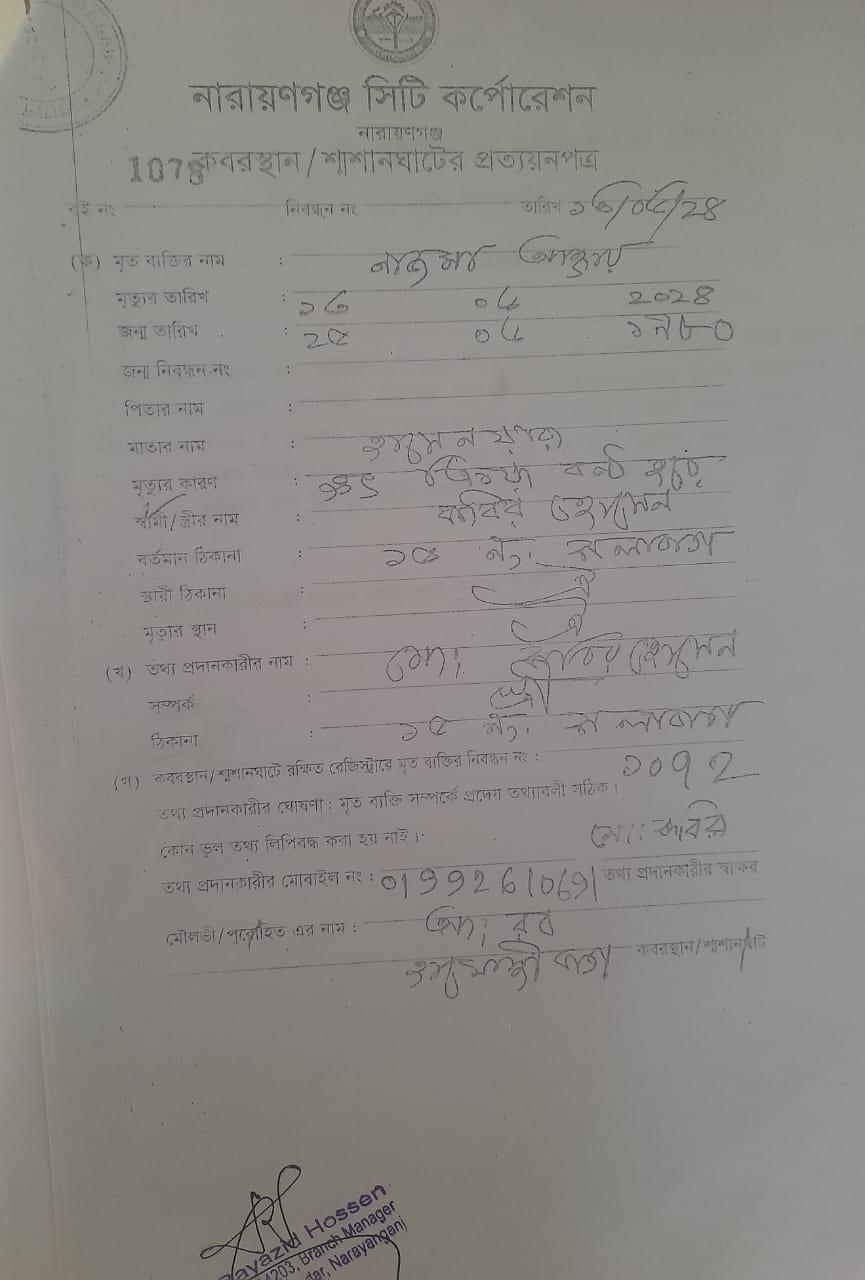 নারায়ণগঞ্জ সিটি কর্পোরেশন
নারায়ণগঞ্জ
1078
কবরস্থান/শ্মশানঘাটের প্রত্যয়নপত্র
বই নং নিবন্ধন নং তারিখ ১৬/০৫/২৪
(ক) মৃত ব্যক্তির নাম : নাজমা আক্তার
মৃত্যুর তারিখ : ১৬ ০৫ ২০২৪
জন্ম তারিখ : ২৫ ০৫ ১৯৮০
জন্ম নিবন্ধন নং :
পিতার নাম :
মাতার নাম :
মৃত্যুর কারণ :
স্বামী/স্ত্রীর নাম : কবির হোসেন
বর্তমান ঠিকানা : ১৫ নং
স্থায়ী ঠিকানা : ঐ
মৃত্যুর স্থান : ঐ
(খ) তথ্য প্রদানকারীর নাম : মোঃ কবির হোসেন
সম্পর্ক :
ঠিকানা : ১৫ নং
(গ) কবরস্থান/শ্মশানঘাটে রক্ষিত রেজিস্ট্রারে মৃত ব্যক্তির নিবন্ধন নং : ১০৭২
তথ্য প্রদানকারীর ঘোষণা : মৃত ব্যক্তি সম্পর্কে প্রদেয় তথ্যাবলী সঠিক।
কোন ভুল তথ্য লিপিবদ্ধ করা হয় নাই। মোঃ কবির
তথ্য প্রদানকারীর মোবাইল নং : 01992610691 তথ্য প্রদানকারীর স্বাক্ষর
মৌলভী/পুরোহিত এর নাম : আঃ রব
কবরস্থান/শ্মশানঘাট
Bayazid Hossen
4203, Branch Manager
Narayanganj